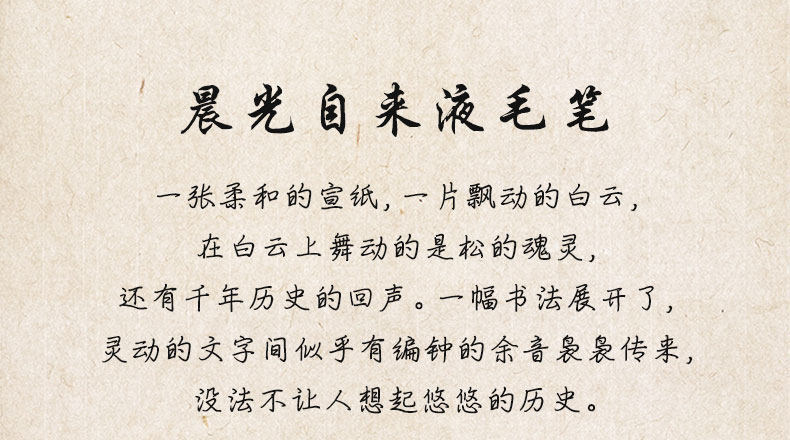 晨光自来液毛笔
一张柔和的宣纸,一片飘动的白云,
在白云上舞动的是松的魂灵,
还有千年历史的回声。一幅书法展开了,
灵动的文字间似乎有编钟的余音袅袅传来,
没法不让人想起悠悠的历史。